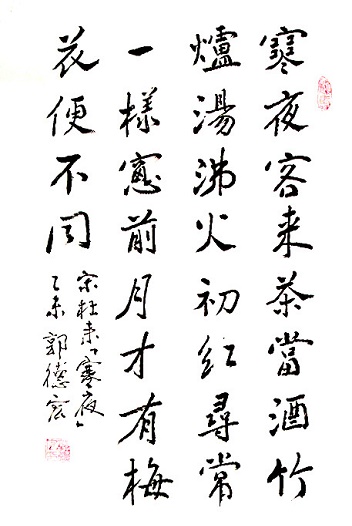 寒夜客来茶當酒竹
爐湯沸火初红尋常
一樣窓前月才有梅
花便不同
宋杜耒「寒夜」
乙未 郭德宏